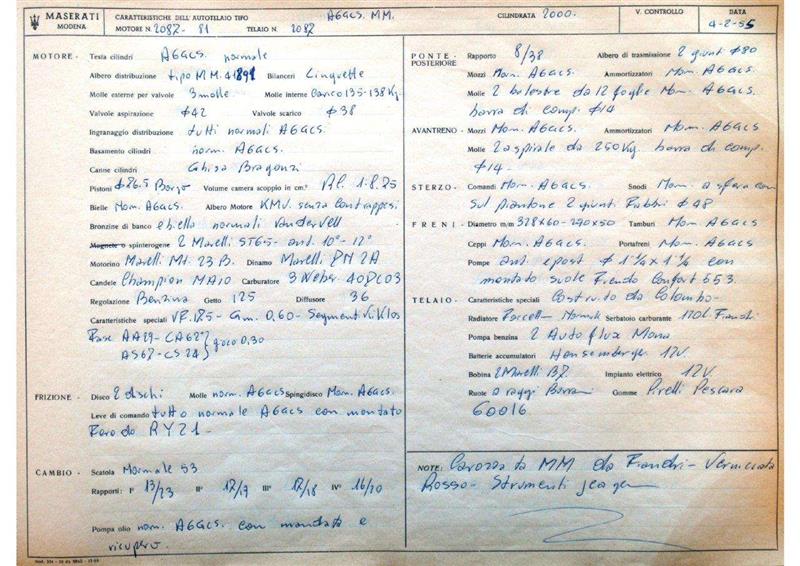 MASERATI
MODENA
CARATTERISTICHE DELL'AUTOTELAIO TIPO A6GCS. MM.
MOTORE N. 2087 - 81 TELAIO N. 2087
CILINDRATA 2000.
V. CONTROLLO
DATA
4-2-55
MOTORE - Testa cilindri A6GCS. normale
Albero distribuzione tipo M.M. Bilanceri Linguette
Molle esterne per valvole 3 molle Molle interne Carico 135-138 Kg.
Valvole aspirazione ϕ42 Valvole scarico ϕ38
Ingranaggio distribuzione tutti normali A6GCS.
Basamento cilindri norm. A6GCS.
Canne cilindri Ghisa Bragonzi
Pistoni ϕ86.5 Borgo Volume camera scoppio in cm.³ 1-8.25
Bielle Nom. A6GCS. Albero Motore KMV. senza contrappesi
Bronzine di banco e biella normali Vandervell
Magnete o spinterogene 2 Marelli ST65- ant. 10°- 12°
Motorino Marelli Mt. 23 B. Dinamo Marelli DN 2A
Candele Champion NA10 Carburatore 3 Weber 40DCO3
Regolazione Benzina Getto 125 Diffusore 36
Caratteristiche speciali Gm. 0,60-
Fase AA29-CA62
AS62-CS24 } gioco 0,30
FRIZIONE - Disco 2 dischi Molle norm. A6GCS Spingidisco Nom. A6GCS.
Leve di comando tutto normale A6GCS con montato
Ferodo RY21-
CAMBIO - Scatola Normale 53
Rapporti: I° 13/23 II° 17/17 III° 12/18 IV° 16/20
Pompa olio nom. A6GCS. con mandata e
ricupero.
PONTE - POSTERIORE Rapporto 8/38 Albero di trasmissione 2 giunti ϕ80
Mozzi Nom. A6GCS. Ammortizzatori Nom. A6GCS.
Molle 2 balestre da 12 foglie Nom. A6GCS.
barra di comp. ϕ14
AVANTRENO - Mozzi Nom. A6GCS. Ammortizzatori Nom. A6GCS
Molle 2 a spirale da 250 Kg. barra di comp.
ϕ14.
STERZO - Comandi Nom. A6GCS. Snodi Nom. a sfera con
sul piantone 2 giunti Fabbri ϕ48
FRENI - Diametro m/m 328x60-290x50 Tamburi Nom. A6GCS
Ceppi Nom. A6GCS. Portafreni Nom. A6GCS
Pompe ant. e post ϕ 1¼ x 1⅛ con
montato suole Frendo Confort 553.
TELAIO - Caratteristiche speciali Costruito da Colombo-
Radiatore Normale Serbatoio carburante 110l. Fiandri
Pompa benzina 2 Autoflux Mona
Batterie accumulatori Hensemberger 12V.
Bobina 2 Marelli BZ. Impianto elettrico 12V
Ruote a raggi Borrani Gomme Pirelli Pescara
600 16.
NOTE: Carozzata MM da Fiandri- Verniciata
Rosso- Strumenti jeager